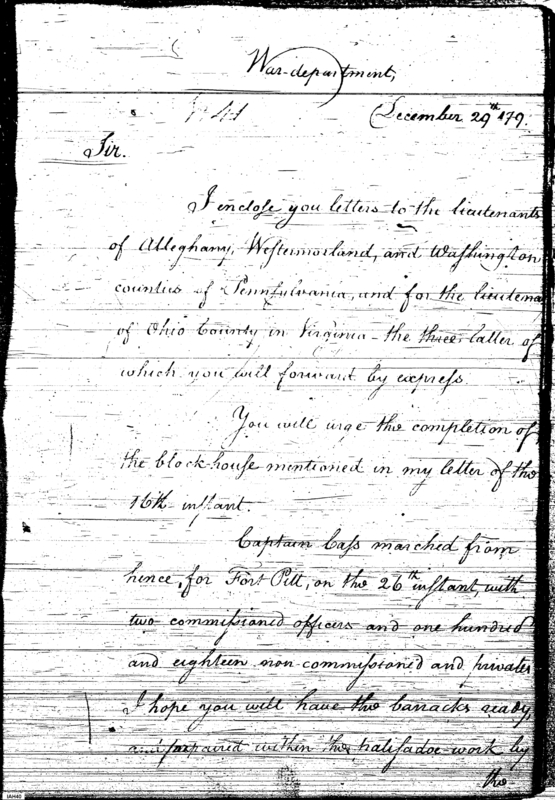 War-department,
December 29th 179
Sir.
I enclose you letters to the lieutenants
of Alleghany, Westermorland, and Washington
counties of Pennsylvania, and for the lieutena
of Ohio County in Virginia - the three latter of
which you will forward by express.
You will urge the completion of
the block-house mentioned in my letter of the
16th instant.
Captain Cass marched from
hence, for Fort Pitt, on the 26th instant, with
two commissioned officers and one hundred
and eighteen non-commissioned and privates
I hope you will have the barracks ready,
and prepared within the palisadoe work by
the